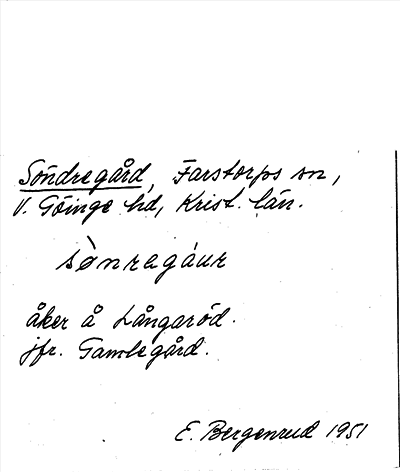 Söndregård, Farstorps sn,
V. Göinge hd, Krist. län.
sònragáur
åker å Långaröd.
jfr. Gamlegård.
E. Bergenrud 1951